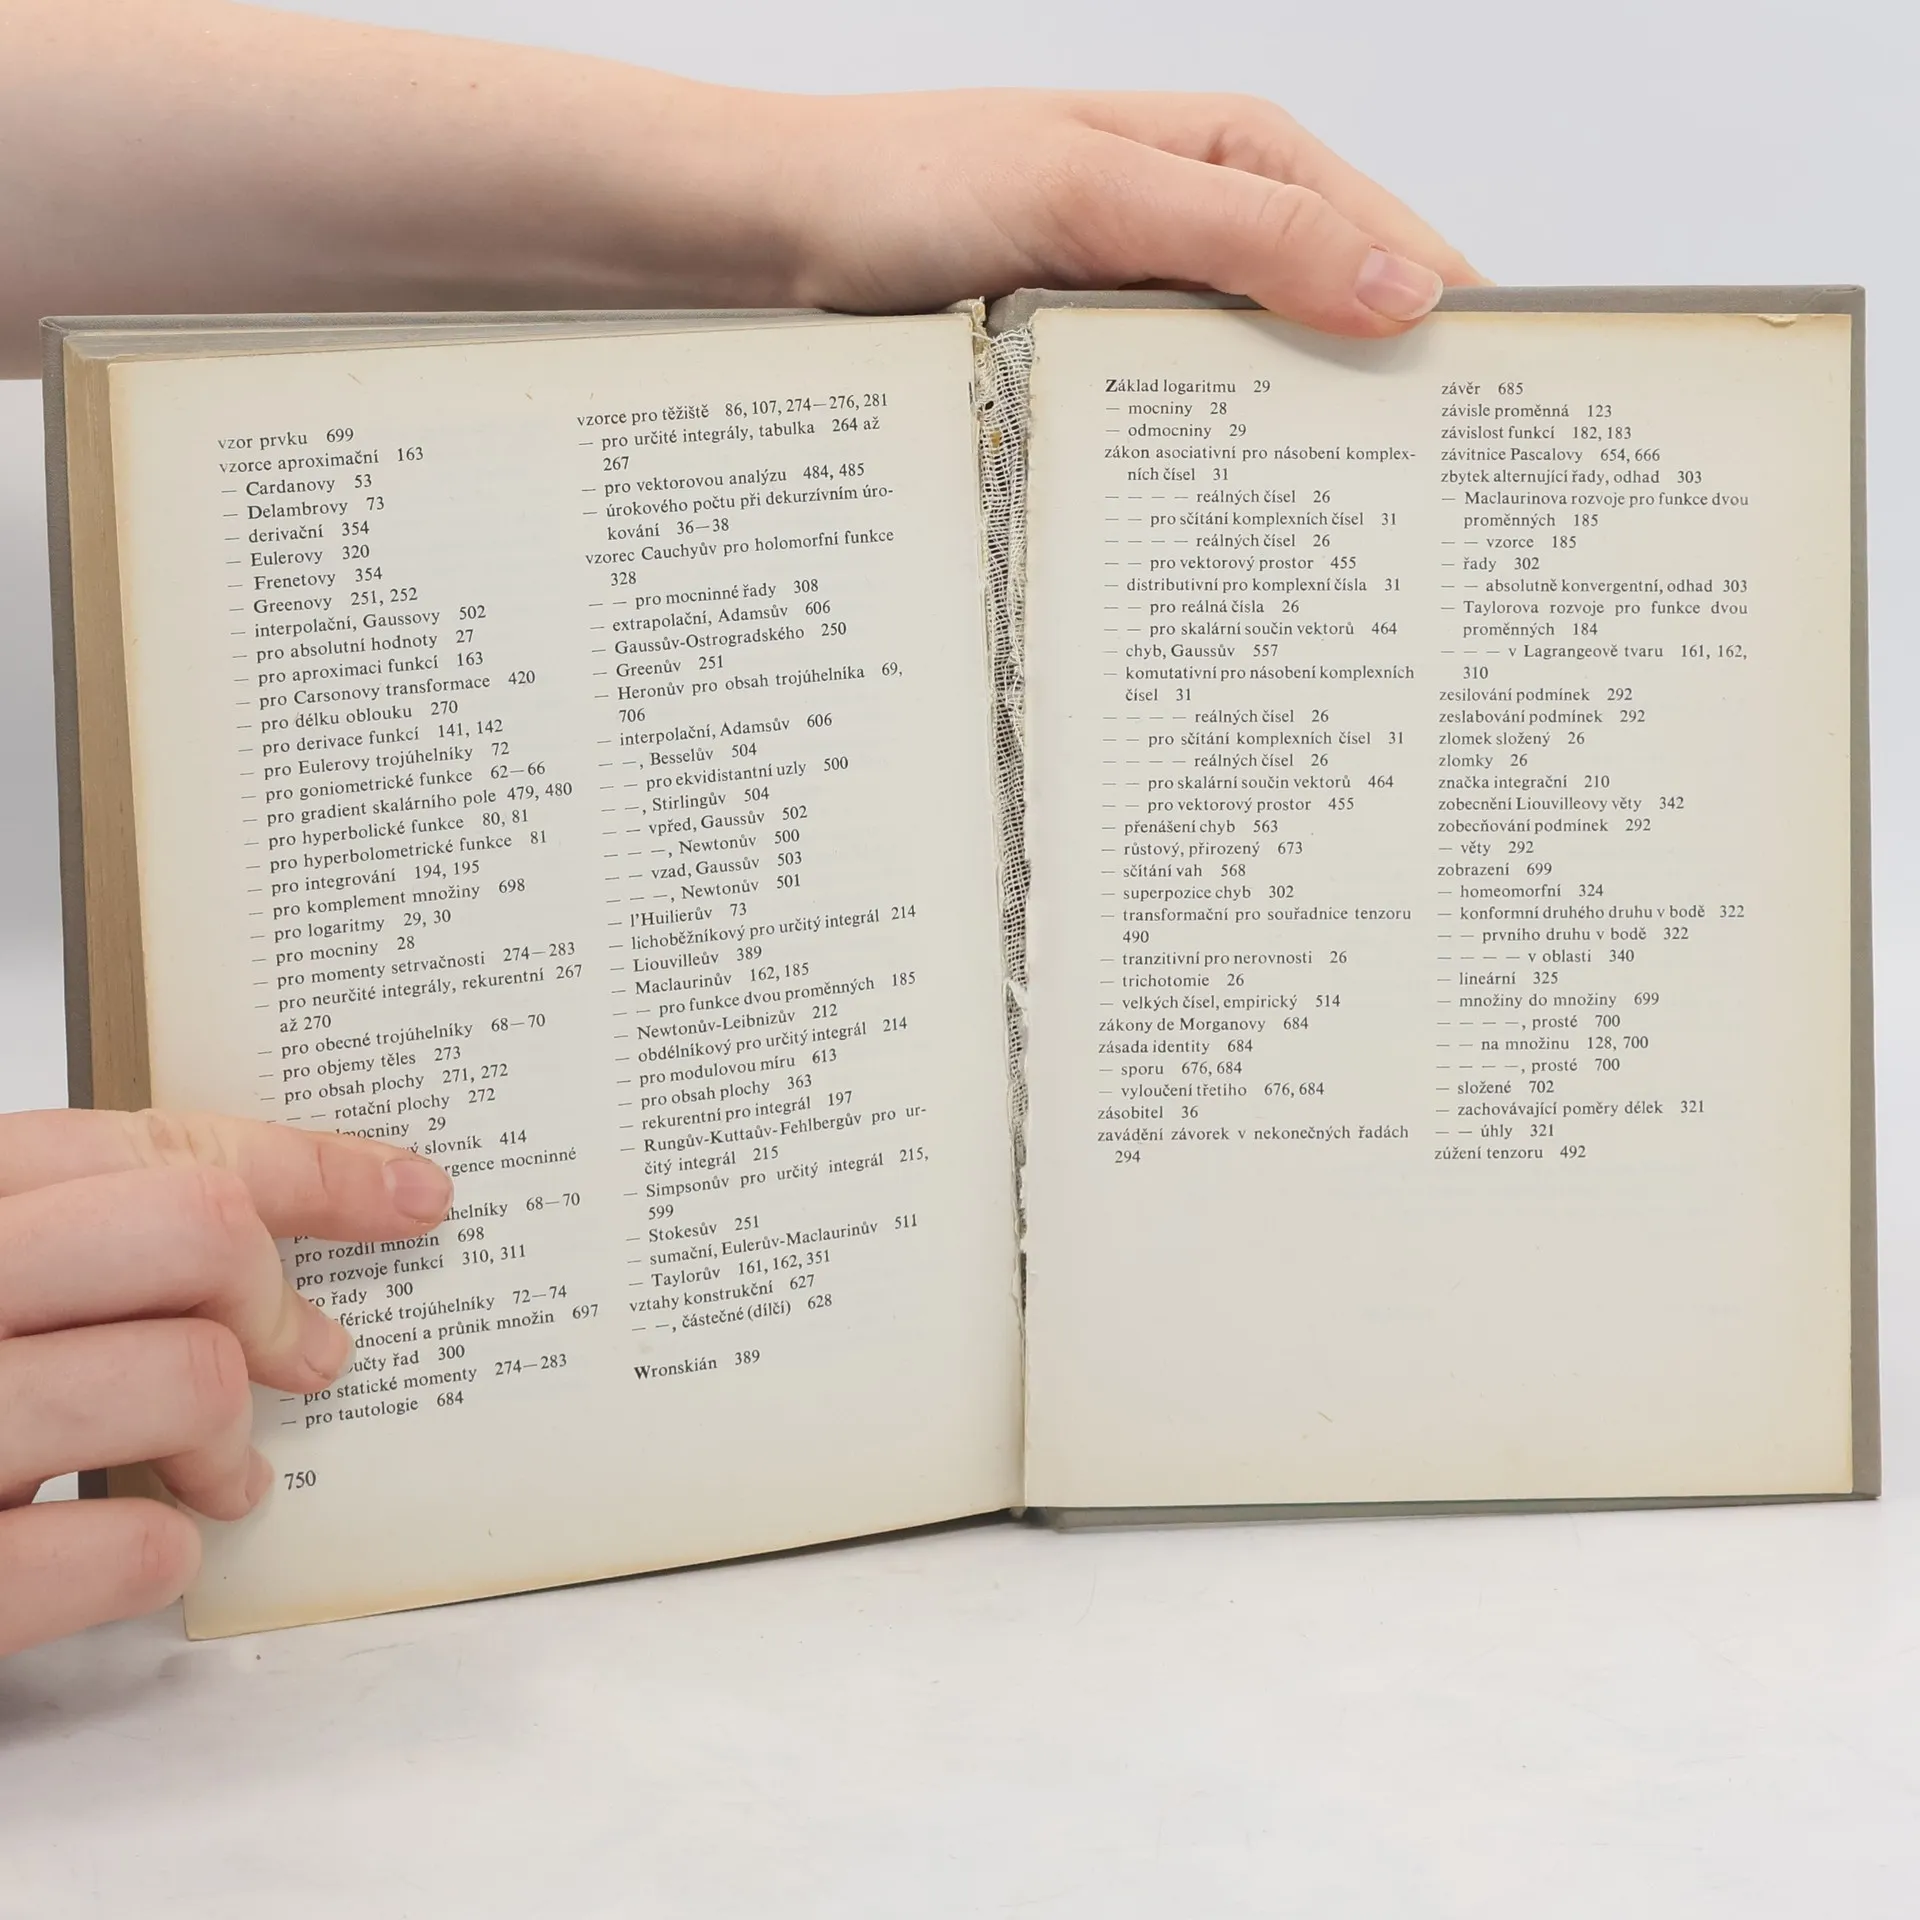 vzor prvku 699
vzorce aproximační 163
— Cardanovy 53
— Delambrovy 73
— derivační 354
— Eulerovy 320
— Frenetovy 354
— Greenovy 251, 252
— interpolační, Gaussovy 502
— pro absolutní hodnoty 27
— pro aproximaci funkcí 163
— pro Carsonovy transformace 420
— pro délku oblouku 270
— pro derivace funkcí 141, 142
— pro Eulerovy trojúhelníky 72
— pro goniometrické funkce 62—66
— pro gradient skalárního pole 479, 480
— pro hyperbolické funkce 80, 81
— pro hyperbolometrické funkce 81
— pro integrování 194, 195
— pro komplement množiny 698
— pro logaritmy 29, 30
— pro mocniny 28
— pro momenty setrvačnosti 274—283
— pro neurčité integrály, rekurentní 267
až 270
— pro obecné trojúhelníky 68—70
— pro objemy těles 273
— pro obsah plochy 271, 272
— — — rotační plochy 272
29
slovník 414
mocninné
68—70
— pro rozdíl množin 698
pro rozvoje funkcí 310, 311
řady 300
trojúhelníky 72—74
a průnik množin 697
řad 300
— pro statické momenty 274—283
— pro tautologie 684
750
vzorce pro těžiště 86, 107, 274—276, 281
— pro určité integrály, tabulka 264 až
267
— pro vektorovou analýzu 484, 485
— úrokového počtu při dekurzívním úro-
kování 36—38
vzorec Cauchyův pro holomorfní funkce
328
— — pro mocninné řady 308
— extrapolační, Adamsův 606
— Gaussův-Ostrogradského 250
— Greenův 251
— Heronův pro obsah trojúhelníka 69,
706
— interpolační, Adamsův 606
— —, Besselův 504
— — pro ekvidistantní uzly 500
— —, Stirlingův 504
— — vpřed, Gaussův 502
— — —, Newtonův 500
— — vzad, Gaussův 503
— — —, Newtonův 501
— l’Huilierův 73
— lichoběžníkový pro určitý integrál 214
— Liouvilleův 389
— Maclaurinův 162, 185
— — pro funkce dvou proměnných 185
— Newtonův-Leibnizův 212
— obdélníkový pro určitý integrál 214
— pro modulovou míru 613
— pro obsah plochy 363
— rekurentní pro integrál 197
— Rungův-Kuttaův-Fehlbergův pro ur-
čitý integrál 215
— Simpsonův pro určitý integrál 215,
599
— Stokesův 251
— sumační, Eulerův-Maclaurinův 511
— Taylorův 161, 162, 351
vztahy konstrukční 627
— —, částečné (dílčí) 628
Wronskián 389
Základ logaritmu 29
— mocniny 28
— odmocniny 29
zákon asociativní pro násobení komplex-
ních čísel 31
— — — — reálných čísel 26
— — pro sčítání komplexních čísel 31
— — — — reálných čísel 26
— — pro vektorový prostor 455
— distributivní pro komplexní čísla 31
— — pro reálná čísla 26
— — pro skalární součin vektorů 464
— chyb, Gaussův 557
— komutativní pro násobení komplexních
čísel 31
— — — — reálných čísel 26
— — pro sčítání komplexních čísel 31
— — — — reálných čísel 26
— — pro skalární součin vektorů 464
— — pro vektorový prostor 455
— přenášení chyb 563
— růstový, přirozený 673
— sčítání vah 568
— superpozice chyb 302
— transformační pro souřadnice tenzoru
490
— tranzitivní pro nerovnosti 26
— trichotomie 26
— velkých čísel, empirický 514
zákony de Morganovy 684
zásada identity 684
— sporu 676, 684
— vyloučení třetího 676, 684
zásobitel 36
zavádění závorek v nekonečných řadách
294
závěr 685
závisle proměnná 123
závislost funkcí 182, 183
závitnice Pascalovy 654, 666
zbytek alternující řady, odhad 303
— Maclaurinova rozvoje pro funkce dvou
proměnných 185
— — vzorce 185
— řady 302
— — absolutně konvergentní, odhad 303
— Taylorova rozvoje pro funkce dvou
proměnných 184
— — — v Lagrangeově tvaru 161, 162,
310
zesilování podmínek 292
zeslabování podmínek 292
zlomek složený 26
zlomky 26
značka integrační 210
zobecnění Liouvilleovy věty 342
zobecňování podmínek 292
— věty 292
zobrazení 699
— homeomorfní 324
— konformní druhého druhu v bodě 322
— — prvního druhu v bodě 322
— — — — v oblasti 340
— lineární 325
— množiny do množiny 699
— — — —, prosté 700
— — na množinu 128, 700
— — — —, prosté 700
— složené 702
— zachovávající poměry délek 321
— — úhly 321
zúžení tenzoru 492